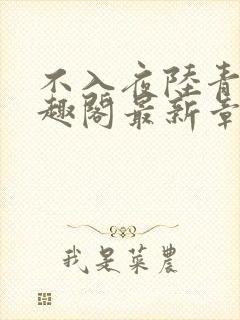 不入夜陸青
趣閣最新章
我是菜農